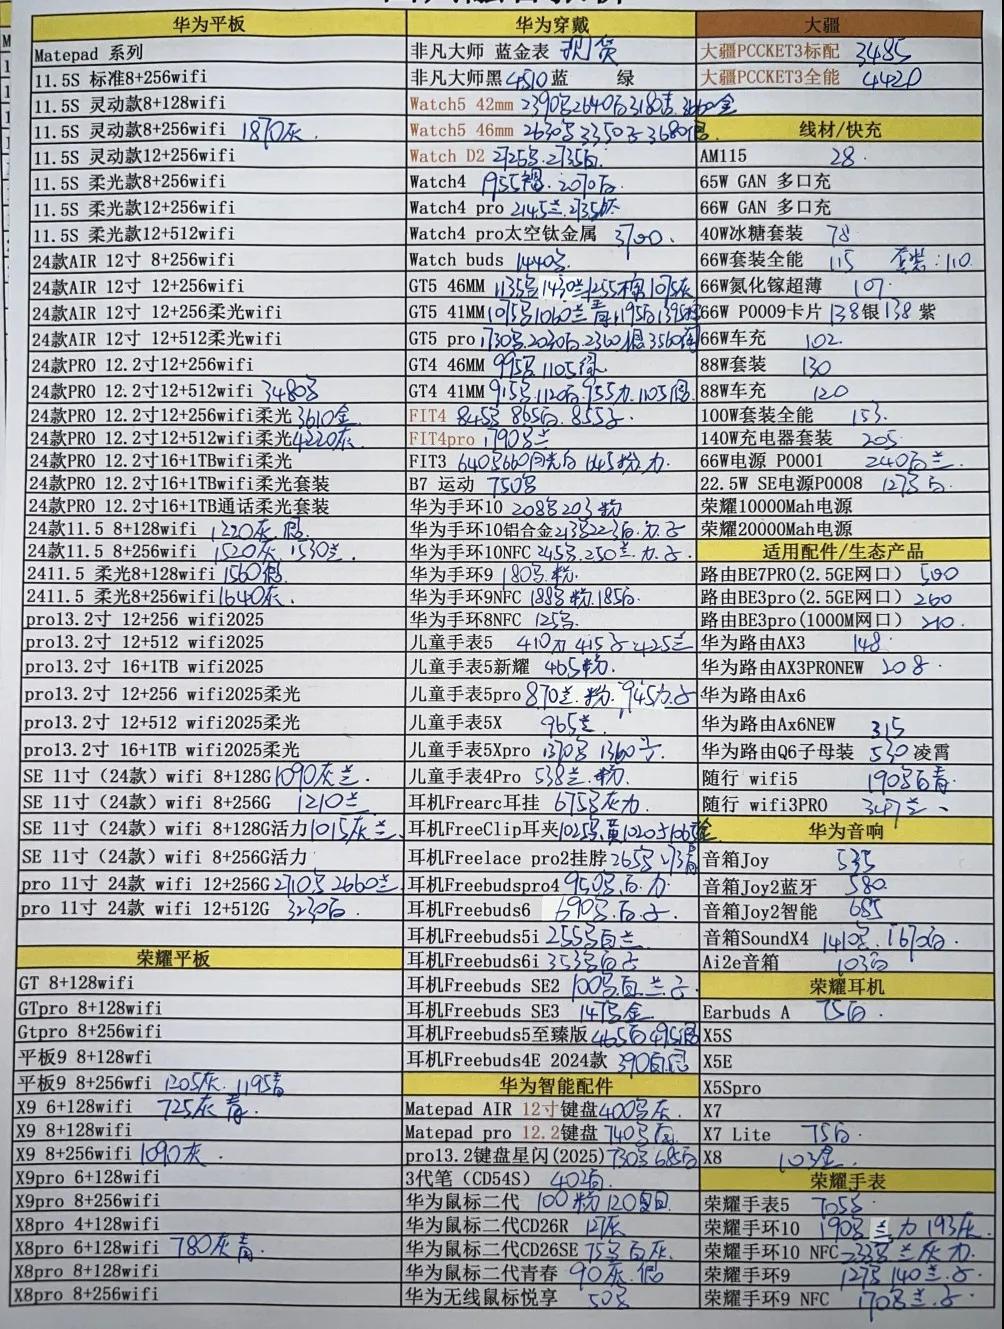 华为平板
Matepad 系列
11.5S 标准8+256wifi
11.5S 灵动款8+128wifi
11.5S 灵动款8+256wifi 1870灰
11.5S 灵动款12+256wifi
11.5S 柔光款8+256wifi
11.5S 柔光款12+256wifi
11.5S 柔光款12+512wifi
24款AIR 12寸 8+256wifi
24款AIR 12寸 12+256wifi
24款AIR 12寸 12+256柔光wifi
24款AIR 12寸 12+512柔光wifi
24款PRO 12.2寸12+256wifi
24款PRO 12.2寸12+512wifi 3480
24款PRO 12.2寸12+256wifi柔光 3610金
24款PRO 12.2寸12+512wifi柔光 4220灰
24款PRO 12.2寸16+1TBwifi柔光
24款PRO 12.2寸16+1TBwifi柔光套装
24款PRO 12.2寸16+1TB通话柔光套装
24款11.5 8+128wifi 1220灰
24款11.5 8+256wifi 1520灰 1530兰
2411.5 柔光8+128wifi 1560
2411.5 柔光8+256wifi 1640灰
pro13.2寸 12+256 wifi2025
pro13.2寸 12+512 wifi2025
pro13.2寸 16+1TB wifi2025
pro13.2寸 12+256 wifi2025柔光
pro13.2寸 12+512 wifi2025柔光
pro13.2寸 16+1TB wifi2025柔光
SE 11寸（24款）wifi 8+128G 1090灰兰
SE 11寸（24款）wifi 8+256G 1210兰
SE 11寸（24款）wifi 8+128G活力 1015灰兰
SE 11寸（24款）wifi 8+256G活力
pro 11寸 24款 wifi 12+256G 2710 2660兰
pro 11寸 24款 wifi 12+512G 3230白
荣耀平板
GT 8+128wifi
GTpro 8+128wifi
Gtpro 8+256wifi
平板9 8+128wfi
平板9 8+256wfi 1205灰 1195青
X9 6+128wifi 725灰 青
X9 8+128wifi
X9 8+256wifi 1090灰
X9pro 6+128wifi
X9pro 8+256wifi
X8pro 4+128wifi
X8pro 6+128wifi 780灰青
X8pro 8+128wifi
X8pro 8+256wifi
华为穿戴
非凡大师 蓝金表
非凡大师黑 4510 蓝 绿
Watch5 42mm 2390 2640白 3180
Watch5 46mm 2630 3350 3680
Watch D2 2725 2735白
Watch4 1955 2070白
Watch4 pro 2145兰
Watch4 pro太空钛金属 3700
Watch buds 1440
GT5 46MM 1135 1430兰 1255 1075灰
GT5 41MM 1015 1060兰 青 1195白 1395
GT5 pro 1730 2030白
GT4 46MM 995 1105绿
GT4 41MM 915 1120白 955 1105
FIT4 845 865白 855
FIT4pro 1790 兰
FIT3 640 660月光白 645粉
B7 运动 750
华为手环10 208 203粉
华为手环10铝合金 213 223白
华为手环10NFC 245 250兰
华为手环9 180 粉
华为手环9NFC 188 粉 185白
华为手环8NFC 125
儿童手表5 410 415 425兰
儿童手表5新耀 465粉
儿童手表5pro 870兰 粉 945
儿童手表5X 965兰
儿童手表5Xpro 1370 1360
儿童手表4Pro 538兰 粉
耳机Frearc耳挂 675 灰
耳机FreeClip耳夹 1025 黄1020
耳机Freelace pro2挂脖 265 273青
耳机Freebudspro4 950 白
耳机Freebuds6 690 白
耳机Freebuds5i 255 白兰
耳机Freebuds6i 353 白
耳机Freebuds SE2 100 白 兰
耳机Freebuds SE3 147 金
耳机Freebuds5至臻版 465白 495
耳机Freebuds4E 2024款 390白
华为智能配件
Matepad AIR 12寸键盘 400 灰
Matepad pro 12.2键盘 740
pro13.2键盘星闪(2025) 730 685白
3代笔（CD54S） 402白
华为鼠标二代 100粉 120
华为鼠标二代CD26R 127灰
华为鼠标二代CD26SE 75 白灰
华为鼠标二代青春 90灰
华为无线鼠标悦享 50
大疆
大疆PCCKET3标配 3485
大疆PCCKET3全能 4420
线材/快充
AM115 28
65W GAN 多口充
66W GAN 多口充
40W冰糖套装 78
66W套装全能 115 套装:110
66W氮化镓超薄 107
66W P0009卡片 138银 138 紫
66W车充 102
88W套装 130
88W车充 120
100W套装全能 153
140W充电器套装 205
66W电源 P0001 240白兰
22.5W SE电源P0008 127 白
荣耀10000Mah电源
荣耀20000Mah电源
适用配件/生态产品
路由BE7PRO(2.5GE网口) 500
路由BE3pro(2.5GE网口) 260
路由BE3pro(1000M网口) 210
华为路由AX3 148
华为路由AX3PRONEW 208
华为路由Ax6
华为路由Ax6NEW 315
华为路由Q6子母装 530 凌霄
随行 wifi5 190 白青
随行 wifi3PRO 347兰
华为音响
音箱Joy 535
音箱Joy2蓝牙 580
音箱Joy2智能 685
音箱SoundX4 1410 1670白
Ai2e音箱 103白
荣耀耳机
Earbuds A 75白
X5S
X5E
X5Spro
X7
X7 Lite 75白
X8 103金
荣耀手表
荣耀手表5 705
荣耀手环10 190 兰 193灰
荣耀手环10 NFC 233 兰灰
荣耀手环9 127 140兰
荣耀手环9 NFC 170 兰